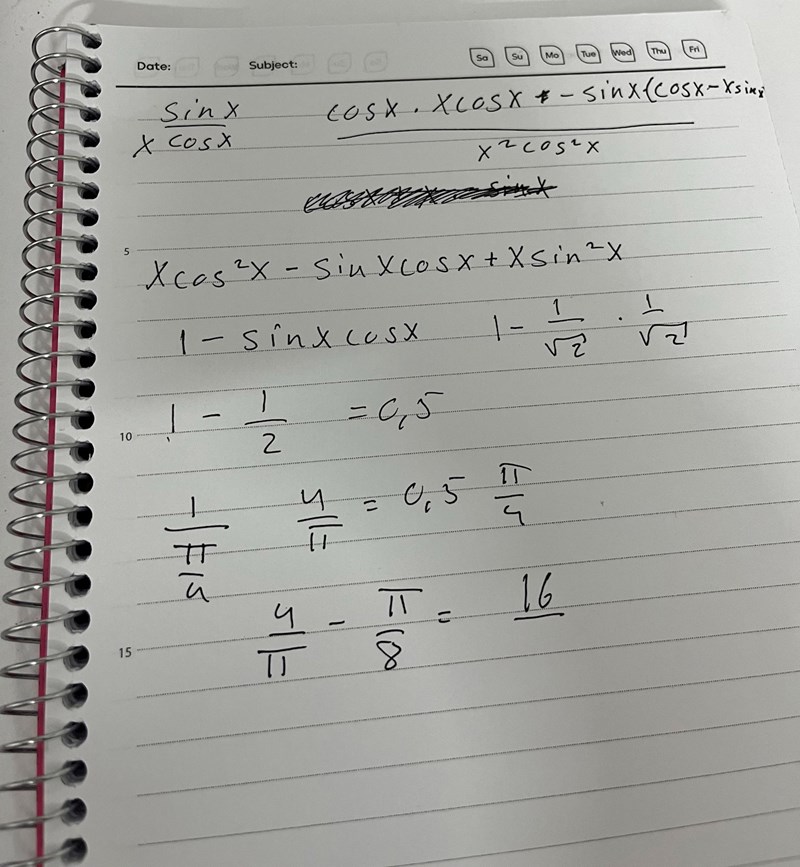 Date: Subject: Sa Su Mo Tue Wed Thu Fri
sinx / x cosx    cosx · xcosx - sinx(cosx-xsinx / x²cos²x
5
xcos²x - sinxcosx + xsin²x
1 - sinxcosx    1 - 1/√2 · 1/√2
10
1 - 1/2 = 0,5
1/(π/4)    4/π = 0,5 π/4
15
4/π - π/8 = 16